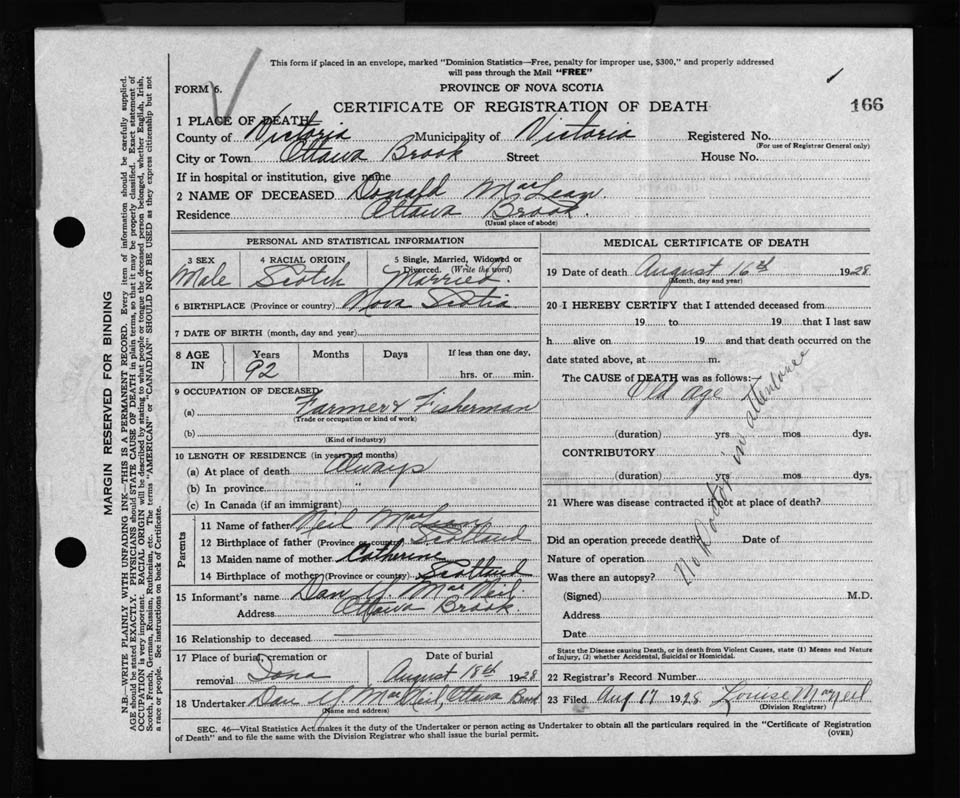 This form if placed in an envelope, marked "Dominion Statistics—Free, penalty for improper use, $300," and properly addressed
will pass through the Mail "FREE"
FORM 6.
PROVINCE OF NOVA SCOTIA
CERTIFICATE OF REGISTRATION OF DEATH
166
1 PLACE OF DEATH
County of Victoria Municipality of Victoria Registered No.
(For use of Registrar General only)
City or Town Ottawa Brook Street House No.
If in hospital or institution, give name
2 NAME OF DECEASED Donald MacLean
Residence Ottawa Brook.
(Usual place of abode)
MARGIN RESERVED FOR BINDING
N.B.—WRITE PLAINLY WITH UNFADING INK—THIS IS A PERMANENT RECORD. Every item of information should be carefully supplied.
AGE should be stated EXACTLY. PHYSICIANS should STATE CAUSE OF DEATH in plain terms, so that it may be properly classified. Exact statement of
OCCUPATION is very important. RACIAL ORIGIN will be described by stating to what people or tongue the deceased person belonged, whether English, Irish,
Scotch, French, German, Russian, Ruthenian, etc. The terms "AMERICAN" or "CANADIAN" SHOULD NOT BE USED as they express citizenship but not
a race or people. See instructions on back of Certificate.
PERSONAL AND STATISTICAL INFORMATION
3 SEX 4 RACIAL ORIGIN 5 Single, Married, Widowed or
Divorced. (Write the word)
Male Scotch Married.
6 BIRTHPLACE (Province or country) Nova Scotia
7 DATE OF BIRTH (month, day and year)
8 AGE IN Years Months Days If less than one day,
92 hrs. or min.
9 OCCUPATION OF DECEASED
(a) Farmer & Fisherman
(Trade or occupation or kind of work)
(b)
(Kind of industry)
10 LENGTH OF RESIDENCE (in years and months)
(a) At place of death Always
(b) In province "
(c) In Canada (if an immigrant)
Parents
11 Name of father Neil MacLean
12 Birthplace of father (Province or country) Scotland
13 Maiden name of mother Catherine
14 Birthplace of mother (Province or country) Scotland
15 Informant's name Dan Y. MacNeil.
Address Ottawa Brook.
16 Relationship to deceased
17 Place of burial, cremation or Date of burial
removal Iona August 18th 1928
18 Undertaker Dan Y. MacNeil, Ottawa Brook
(Name and address)
MEDICAL CERTIFICATE OF DEATH
19 Date of death August 16th 1928
(Month, day and year)
20 I HEREBY CERTIFY that I attended deceased from
19 to 19 that I last saw
h alive on 19 and that death occurred on the
date stated above, at m.
The CAUSE of DEATH was as follows:—
Old age
(duration) yrs mos dys.
CONTRIBUTORY
(duration) yrs mos dys.
No Doctor in attendance
21 Where was disease contracted if not at place of death?
Did an operation precede death? Date of
Nature of operation
Was there an autopsy?
(Signed) M.D.
Address
Date
State the Disease causing Death, or in death from Violent Causes, state (1) Means and Nature
of Injury, (2) whether Accidental, Suicidal or Homicidal.
22 Registrar's Record Number
23 Filed Aug 17 1928 Louise MacNeil
(Division Registrar)
SEC. 46—Vital Statistics Act makes it the duty of the Undertaker or person acting as Undertaker to obtain all the particulars required in the "Certificate of Registration
of Death" and to file the same with the Division Registrar who shall issue the burial permit.
(OVER)